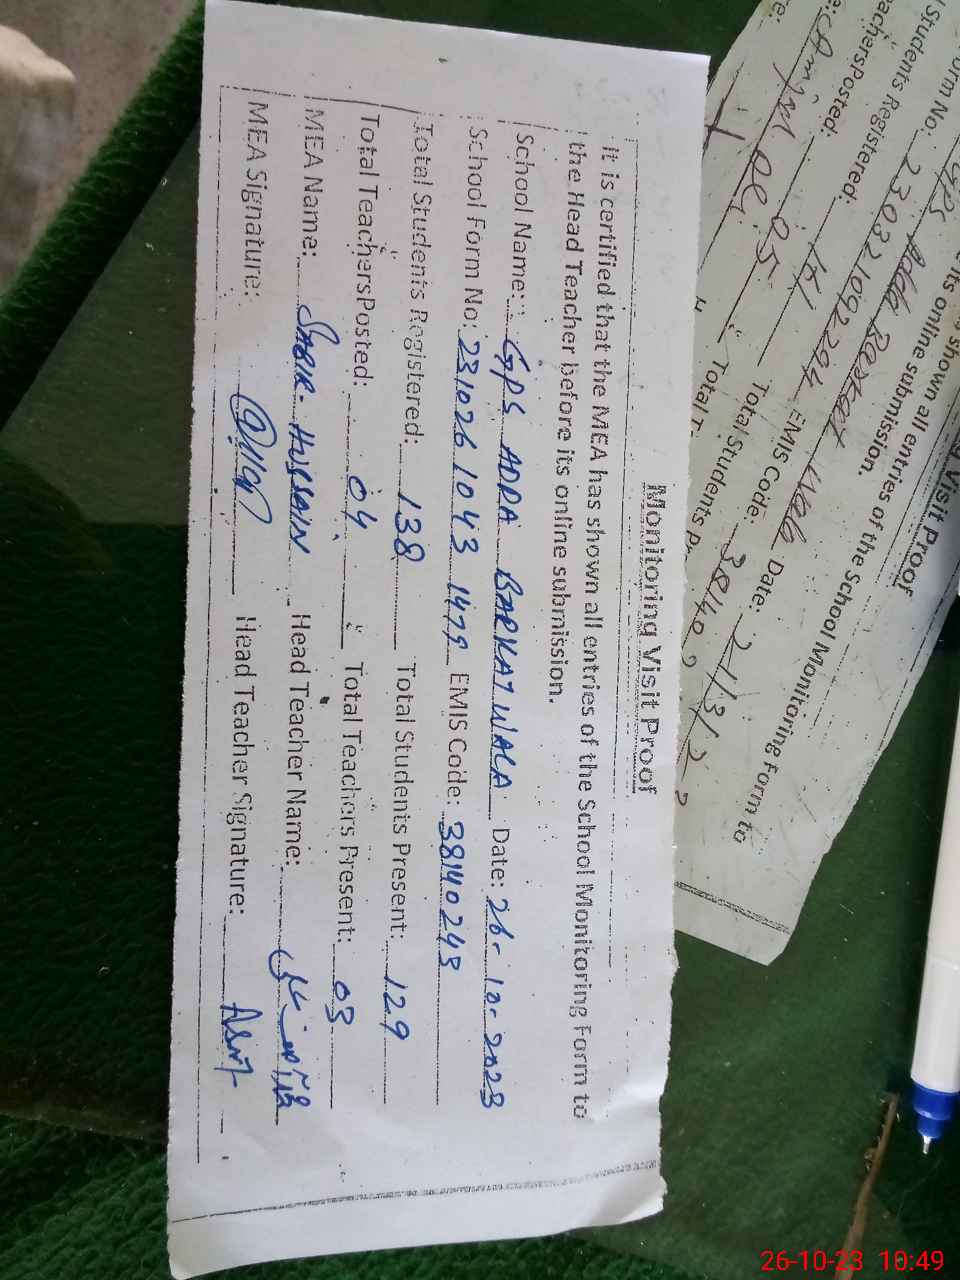 Monitoring Visit Proof
It is certified that the MEA has shown all entries of the School Monitoring Form to
the Head Teacher before its online submission.
School Name: GPS ADDA BARKAT WALA Date: 26-10-2023
School Form No: 231026 1043 1479 EMIS Code: 38140243
Total Students Registered: 138 Total Students Present: 129
Total Teachers Posted: 04 Total Teachers Present: 03
MEA Name: SABIR HUSSAIN Head Teacher Name:
MEA Signature: Head Teacher Signature:
Visit Proof
its online submission.
shown all entries of the School Monitoring Form to
GPS Adda Barkat Wala Date: 21/3/2
Form No. 230321092294 EMIS Code: 38140 2
Students Registered: 161 Total Students Pr
eachersPosted: 05 Total T
26-10-23 10:49